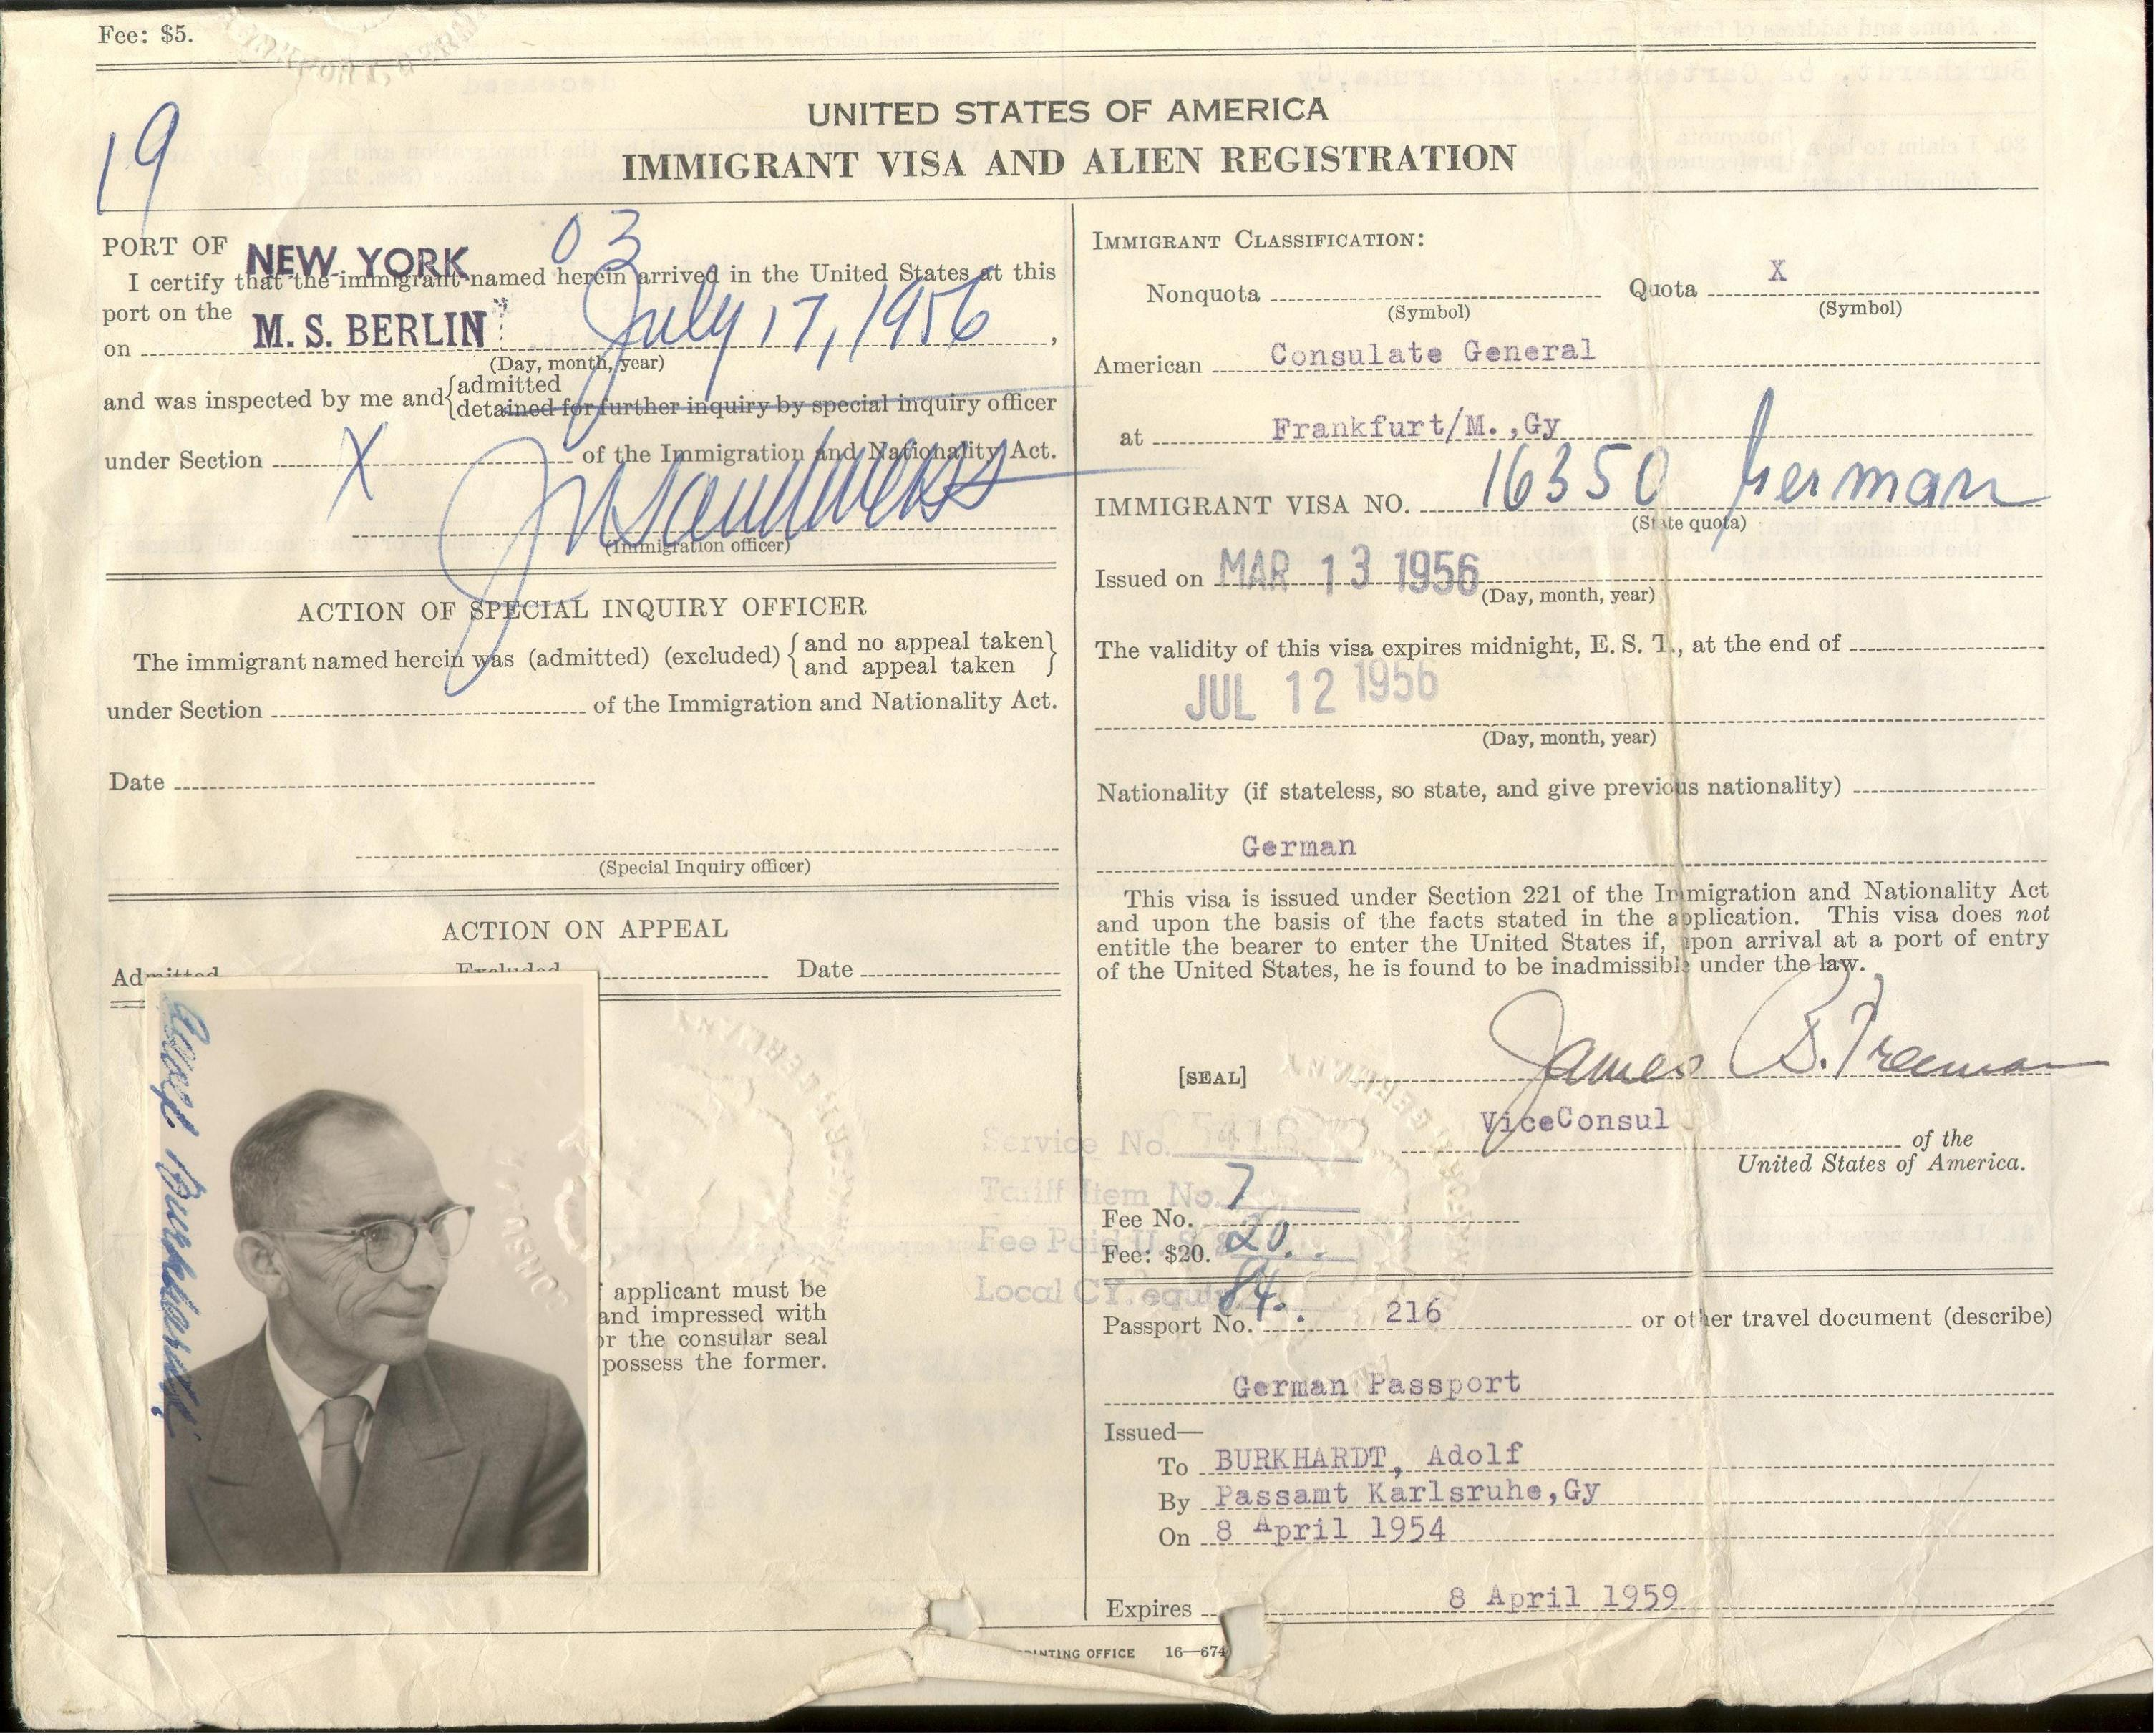 Fee: $5.
19
UNITED STATES OF AMERICA
IMMIGRANT VISA AND ALIEN REGISTRATION
PORT OF NEW YORK 03
I certify that the immigrant named herein arrived in the United States at this
port on the
on M. S. BERLIN July 17, 1956,
(Day, month, year)
and was inspected by me and { admitted
detained for further inquiry by special inquiry officer
under Section X of the Immigration and Nationality Act.
(Immigration officer)
ACTION OF SPECIAL INQUIRY OFFICER
The immigrant named herein was (admitted) (excluded) { and no appeal taken }
and appeal taken
under Section of the Immigration and Nationality Act.
Date
(Special Inquiry officer)
ACTION ON APPEAL
Admitted Excluded Date
Adolf Burkhardt
applicant must be
and impressed with
or the consular seal
possess the former.
IMMIGRANT CLASSIFICATION:
Nonquota Quota X
(Symbol) (Symbol)
American Consulate General
at Frankfurt/M.,Gy
IMMIGRANT VISA NO. 16350 German
(State quota)
Issued on MAR 13 1956
(Day, month, year)
The validity of this visa expires midnight, E. S. T., at the end of
JUL 12 1956
(Day, month, year)
Nationality (if stateless, so state, and give previous nationality)
German
This visa is issued under Section 221 of the Immigration and Nationality Act
and upon the basis of the facts stated in the application. This visa does not
entitle the bearer to enter the United States if, upon arrival at a port of entry
of the United States, he is found to be inadmissible under the law.
[SEAL] James B. Freeman
ViceConsul
of the
United States of America.
Service No.
Tariff Item No. 7
Fee No.
Fee Paid U. S. $ 20.
Fee: $20.
Local CY. equiv. 84.
Passport No. 216 or other travel document (describe)
German Passport
Issued—
To BURKHARDT, Adolf
By Passamt Karlsruhe,Gy
On 8 April 1954
Expires 8 April 1959
PRINTING OFFICE 16—674